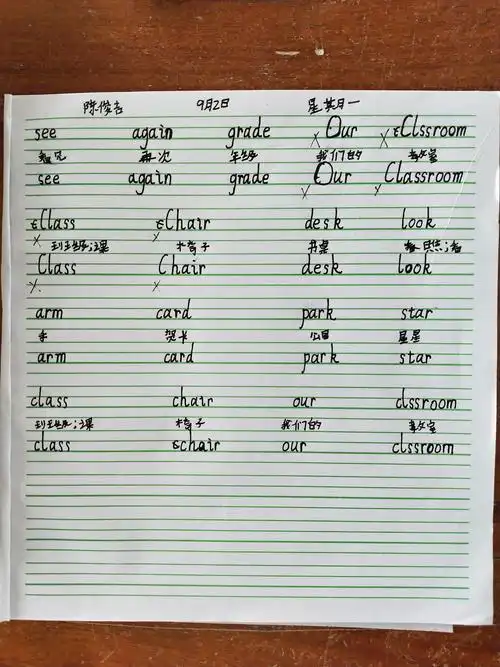 陈俊杏 9月2日 星期一
see again grade Our Clssroom
看见 再次 年级 我们的 教室
see again grade Our Classroom
Class Chair desk look
班级;课 椅子 书桌 看;看
Class Chair desk look
arm card park star
手 贺卡 公园 星星
arm card park star
class chair our clssroom
班级;课 椅子 我们的 教室
class chair our clssroom